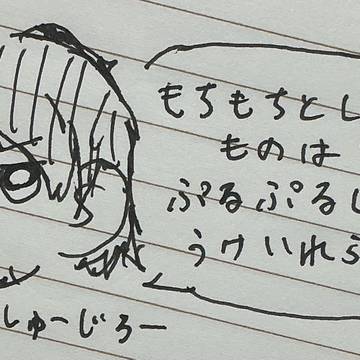 もちもちとし
ものは
ぷるぷるし
うけいれら
しゅーじろー